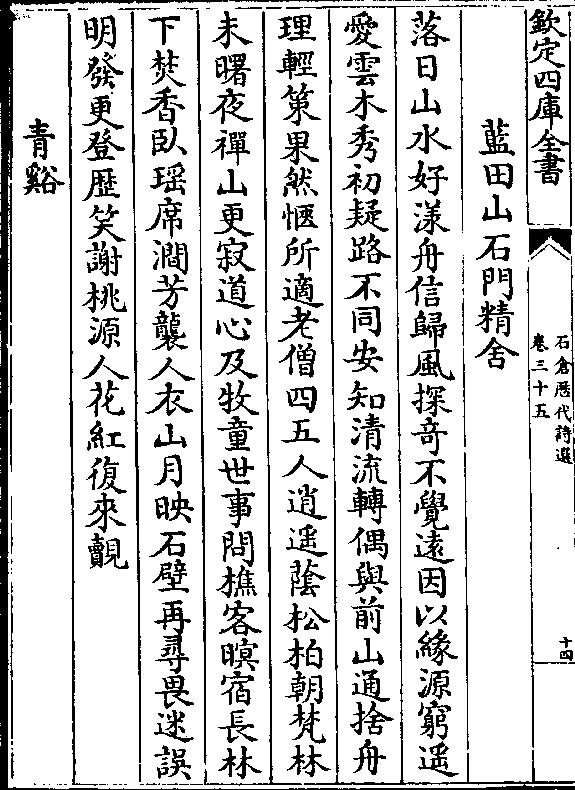 欽定四庫全書
石倉歴代詩選
卷三十五
十四
藍田山石門精舍
落日山水好漾舟信歸風探奇不覺遠因以緣源窮遥
愛雲木秀初疑路不同安知清流轉偶與前山通捨舟
理輕策果然愜所適老僧四五人逍遥蔭松柏朝梵林
未曙夜禪山更寂道心及牧童世事問樵客暝宿長林
下焚香臥瑶席澗芳襲人衣山月映石壁再尋畏迷誤
明發更登歴笑謝桃源人花紅復來覿
青谿